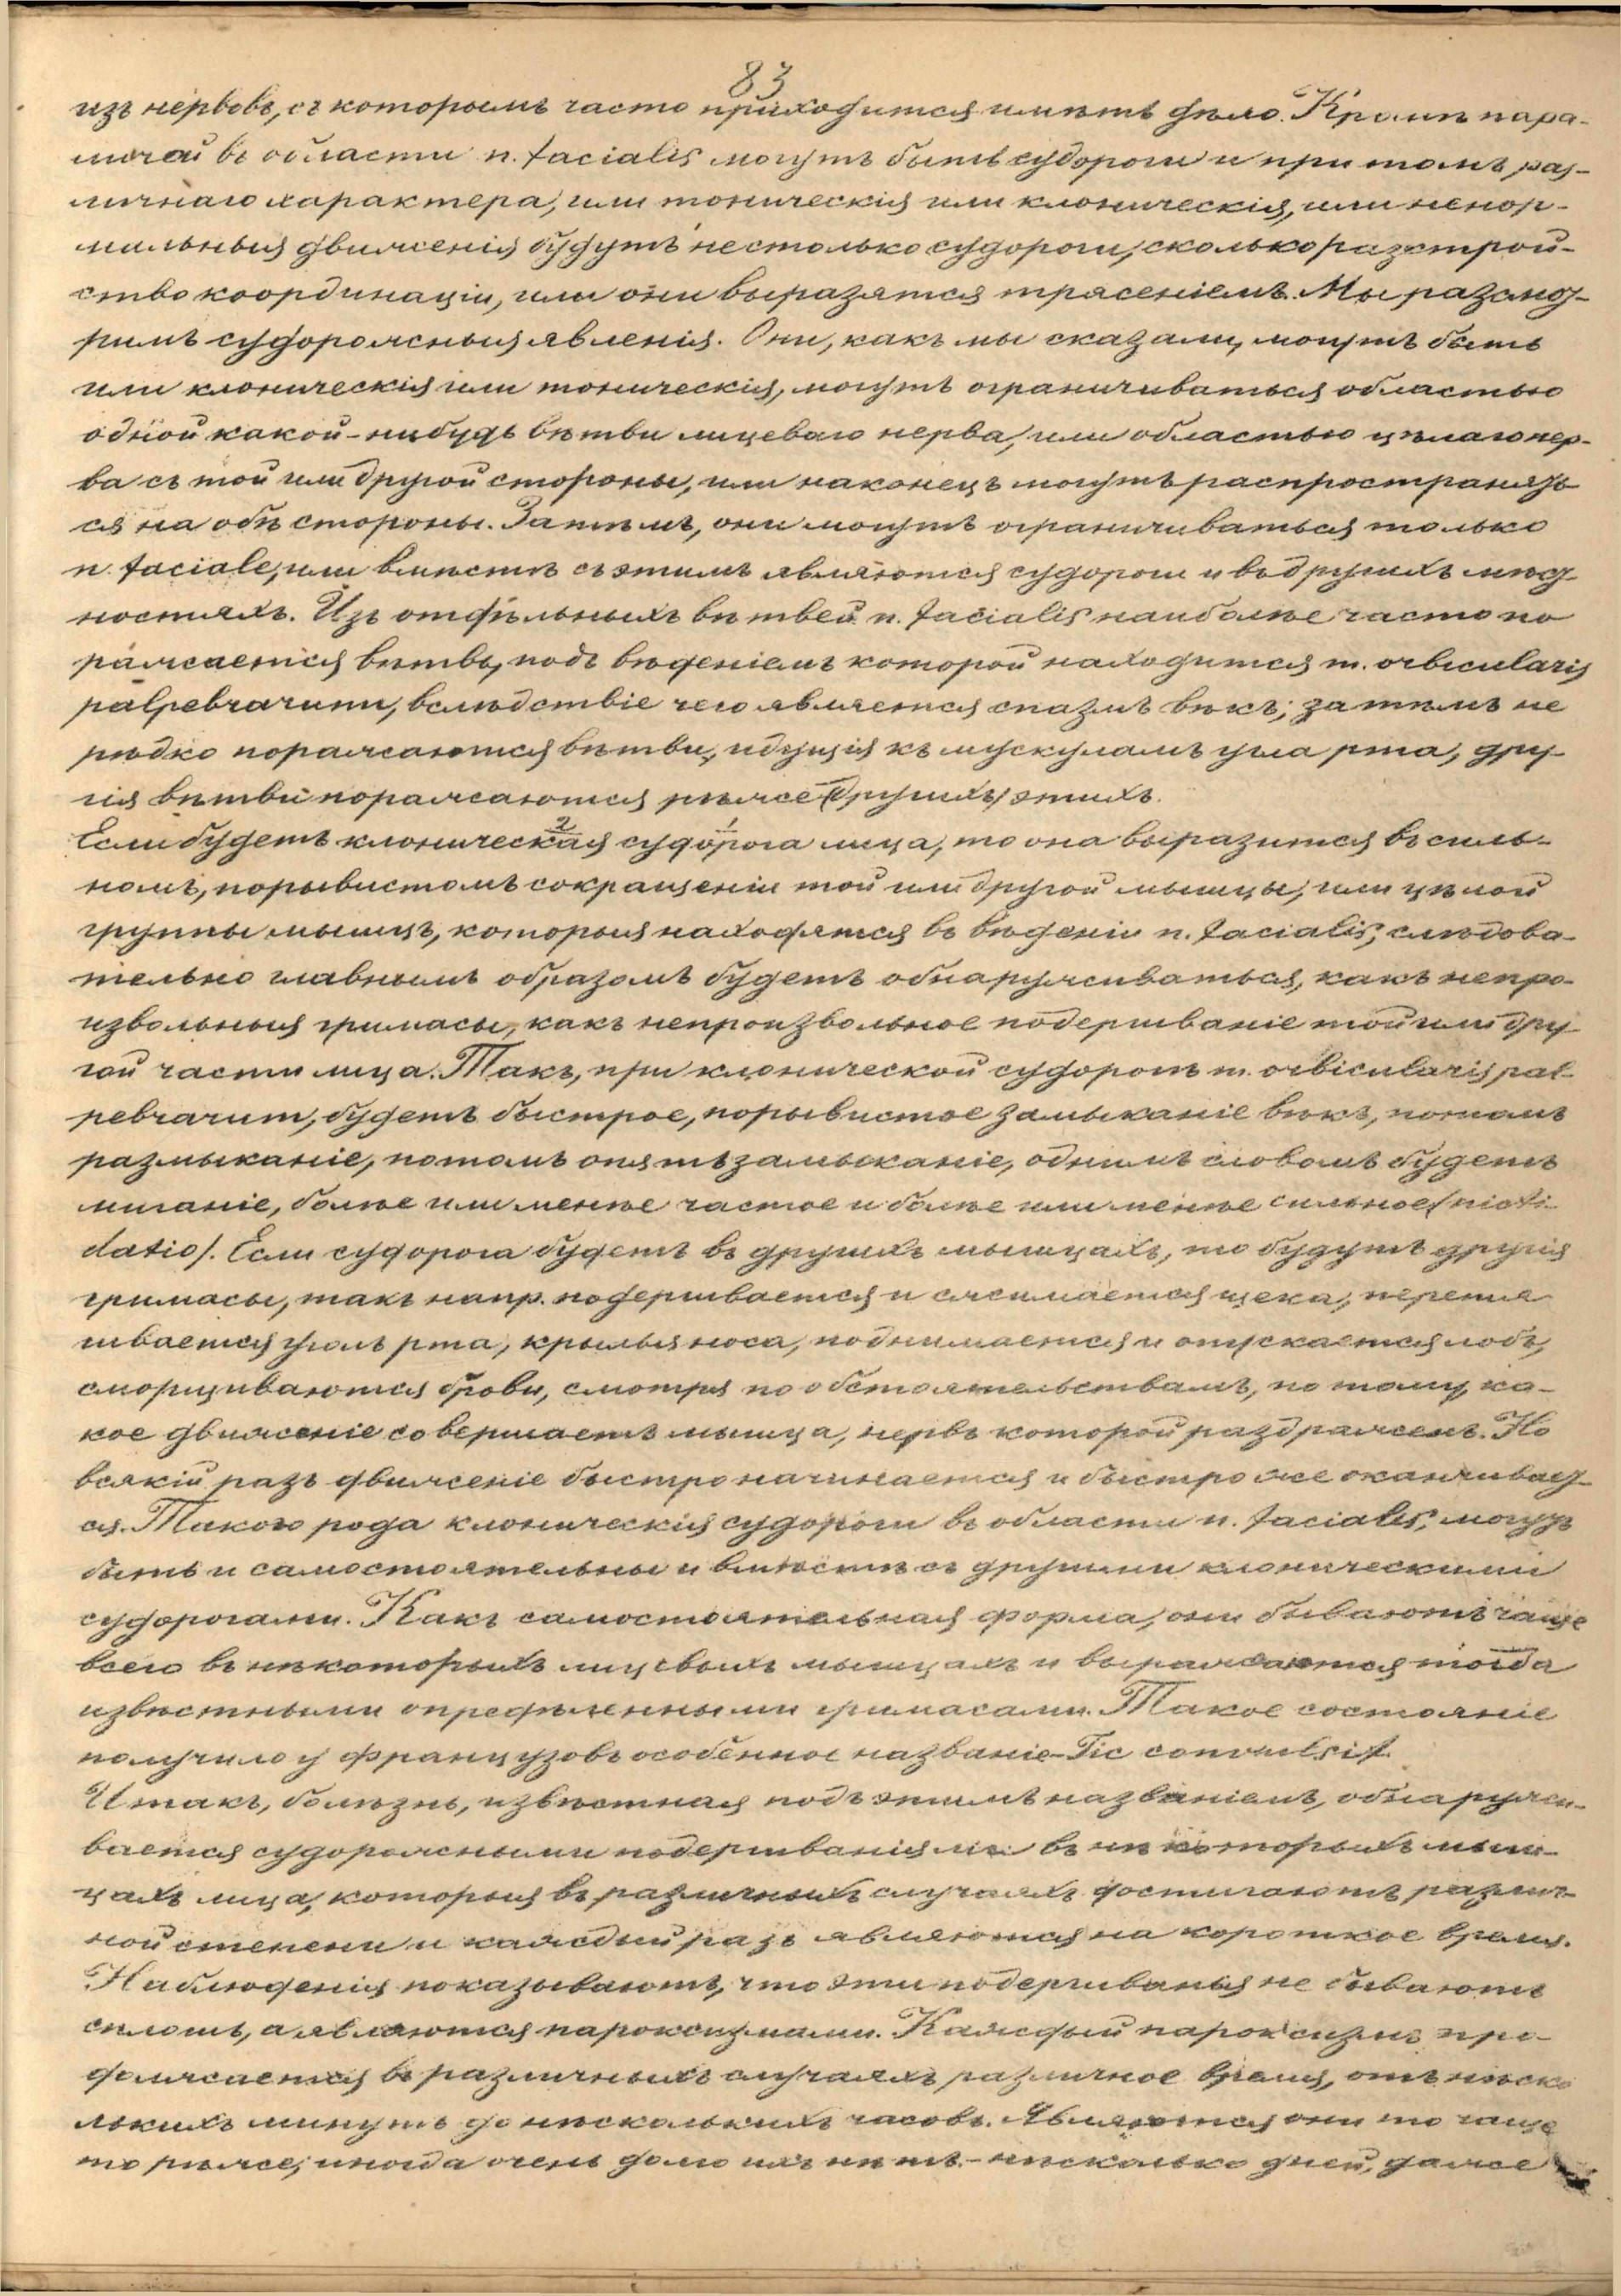 83
изъ нервовъ, съ которымъ часто приходится имѣть дѣло. Кромѣ пара-
личей въ области n. facialis могутъ быть судороги и при томъ раз-
личнаго характера, или тоническія или клоническія, или ненор-
мальныя движенія будутъ не столько судороги, сколько разстрой-
ство координаціи, или они выразятся трясеніемъ. Мы разсмот-
римъ судорожныя явленія. Они, какъ мы сказали, могутъ быть
или клоническія или тоническія, могутъ ограничиваться областью
одной какой-нибудь вѣтви лицеваго нерва, или областью цѣлаго нер-
ва съ той или другой стороны, или наконецъ могутъ распространять
ся на обѣ стороны. Затѣмъ, они могутъ ограничиваться только
n. faciale, или вмѣстѣ съ этимъ являются судороги и въ другихъ мѣст-
ностяхъ. Изъ отдѣльныхъ вѣтвей n. facialis наиболѣе часто по
ражается вѣтвь, подъ вѣденіемъ которой находится m. orbicularis
palpebrarum, вслѣдствіе чего является спазмъ вѣкъ; затѣмъ не
рѣдко поражаются вѣтви, идущія къ мускуламъ угла рта, дру-
гія вѣтви поражаются рѣже (другихъ) этихъ.
Если будетъ клоническая 2 судорога 1 лица, то она выразится въ силь-
номъ, порывистомъ сокращеніи той или другой мышцы, или цѣлой
группы мышцъ, которыя находятся въ вѣденіи n. facialis, слѣдова-
тельно главнымъ образомъ будетъ обнаруживаться, какъ непро-
извольныя гримасы, какъ непроизвольное подергиваніе той или дру
гой части лица. Такъ, при клонической судорогѣ m. orbicularis pal-
pebrarum, будетъ быстрое, порывистое замыканіе вѣкъ, потомъ
размыканіе, потомъ опять замыканіе, однимъ словомъ будетъ
миганіе, болѣе или менѣе частое и болѣе или менѣе сильное (nicti-
datio). Если судорога будетъ въ другихъ мышцахъ, то будутъ другія
гримасы, такъ напр. подергивается и сжимается щека, перетя
гивается уголъ рта, крылья носа, поднимается и опускается лобъ,
сморщиваются брови, смотря по обстоятельствамъ, по тому, ка-
кое движеніе совершаетъ мышца, нервъ которой раздраженъ. Но
всякій разъ движеніе быстро начинается и быстро же оканчивает-
ся. Такого рода клоническія судороги въ области n. facialis, могутъ
быть и самостоятельны и вмѣстѣ съ другими клоническими
судорогами. Какъ самостоятельная форма, они бываютъ чаще
всего въ нѣкоторыхъ лицевыхъ мышцахъ и выражаются тогда
извѣстными опредѣленными гримасами. Такое состояніе
получило у французовъ особенное названіе - Tic convulsif.
Итакъ, болѣзнь, извѣстная подъ этимъ названіемъ, обнаружи-
вается судорожными подергиваніями въ нѣкоторыхъ мыш-
цахъ лица, которыя въ различныхъ случаяхъ достигаютъ различ-
ной степени и каждый разъ являются на короткое время.
Наблюденія показываютъ, что эти подергиванья не бываютъ
сплошь, а являются пароксизмами. Каждый пароксизмъ про-
должается въ различныхъ случаяхъ различное время, отъ нѣско
лькихъ минутъ до нѣсколькихъ часовъ. Являются они то чаще
то рѣже, иногда очень долго ихъ нѣтъ - нѣсколько дней, даже